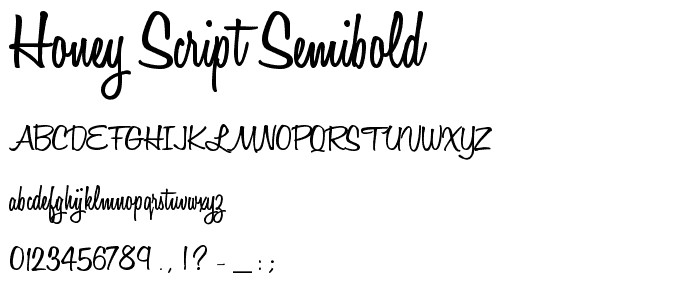 Honey Script Semibold
ABCDEFGHIJKLMNOPQRSTUVWXYZ
abcdefghijklmnopqrstuvwxyz
0123456789 .,  ! ? - _ : ;